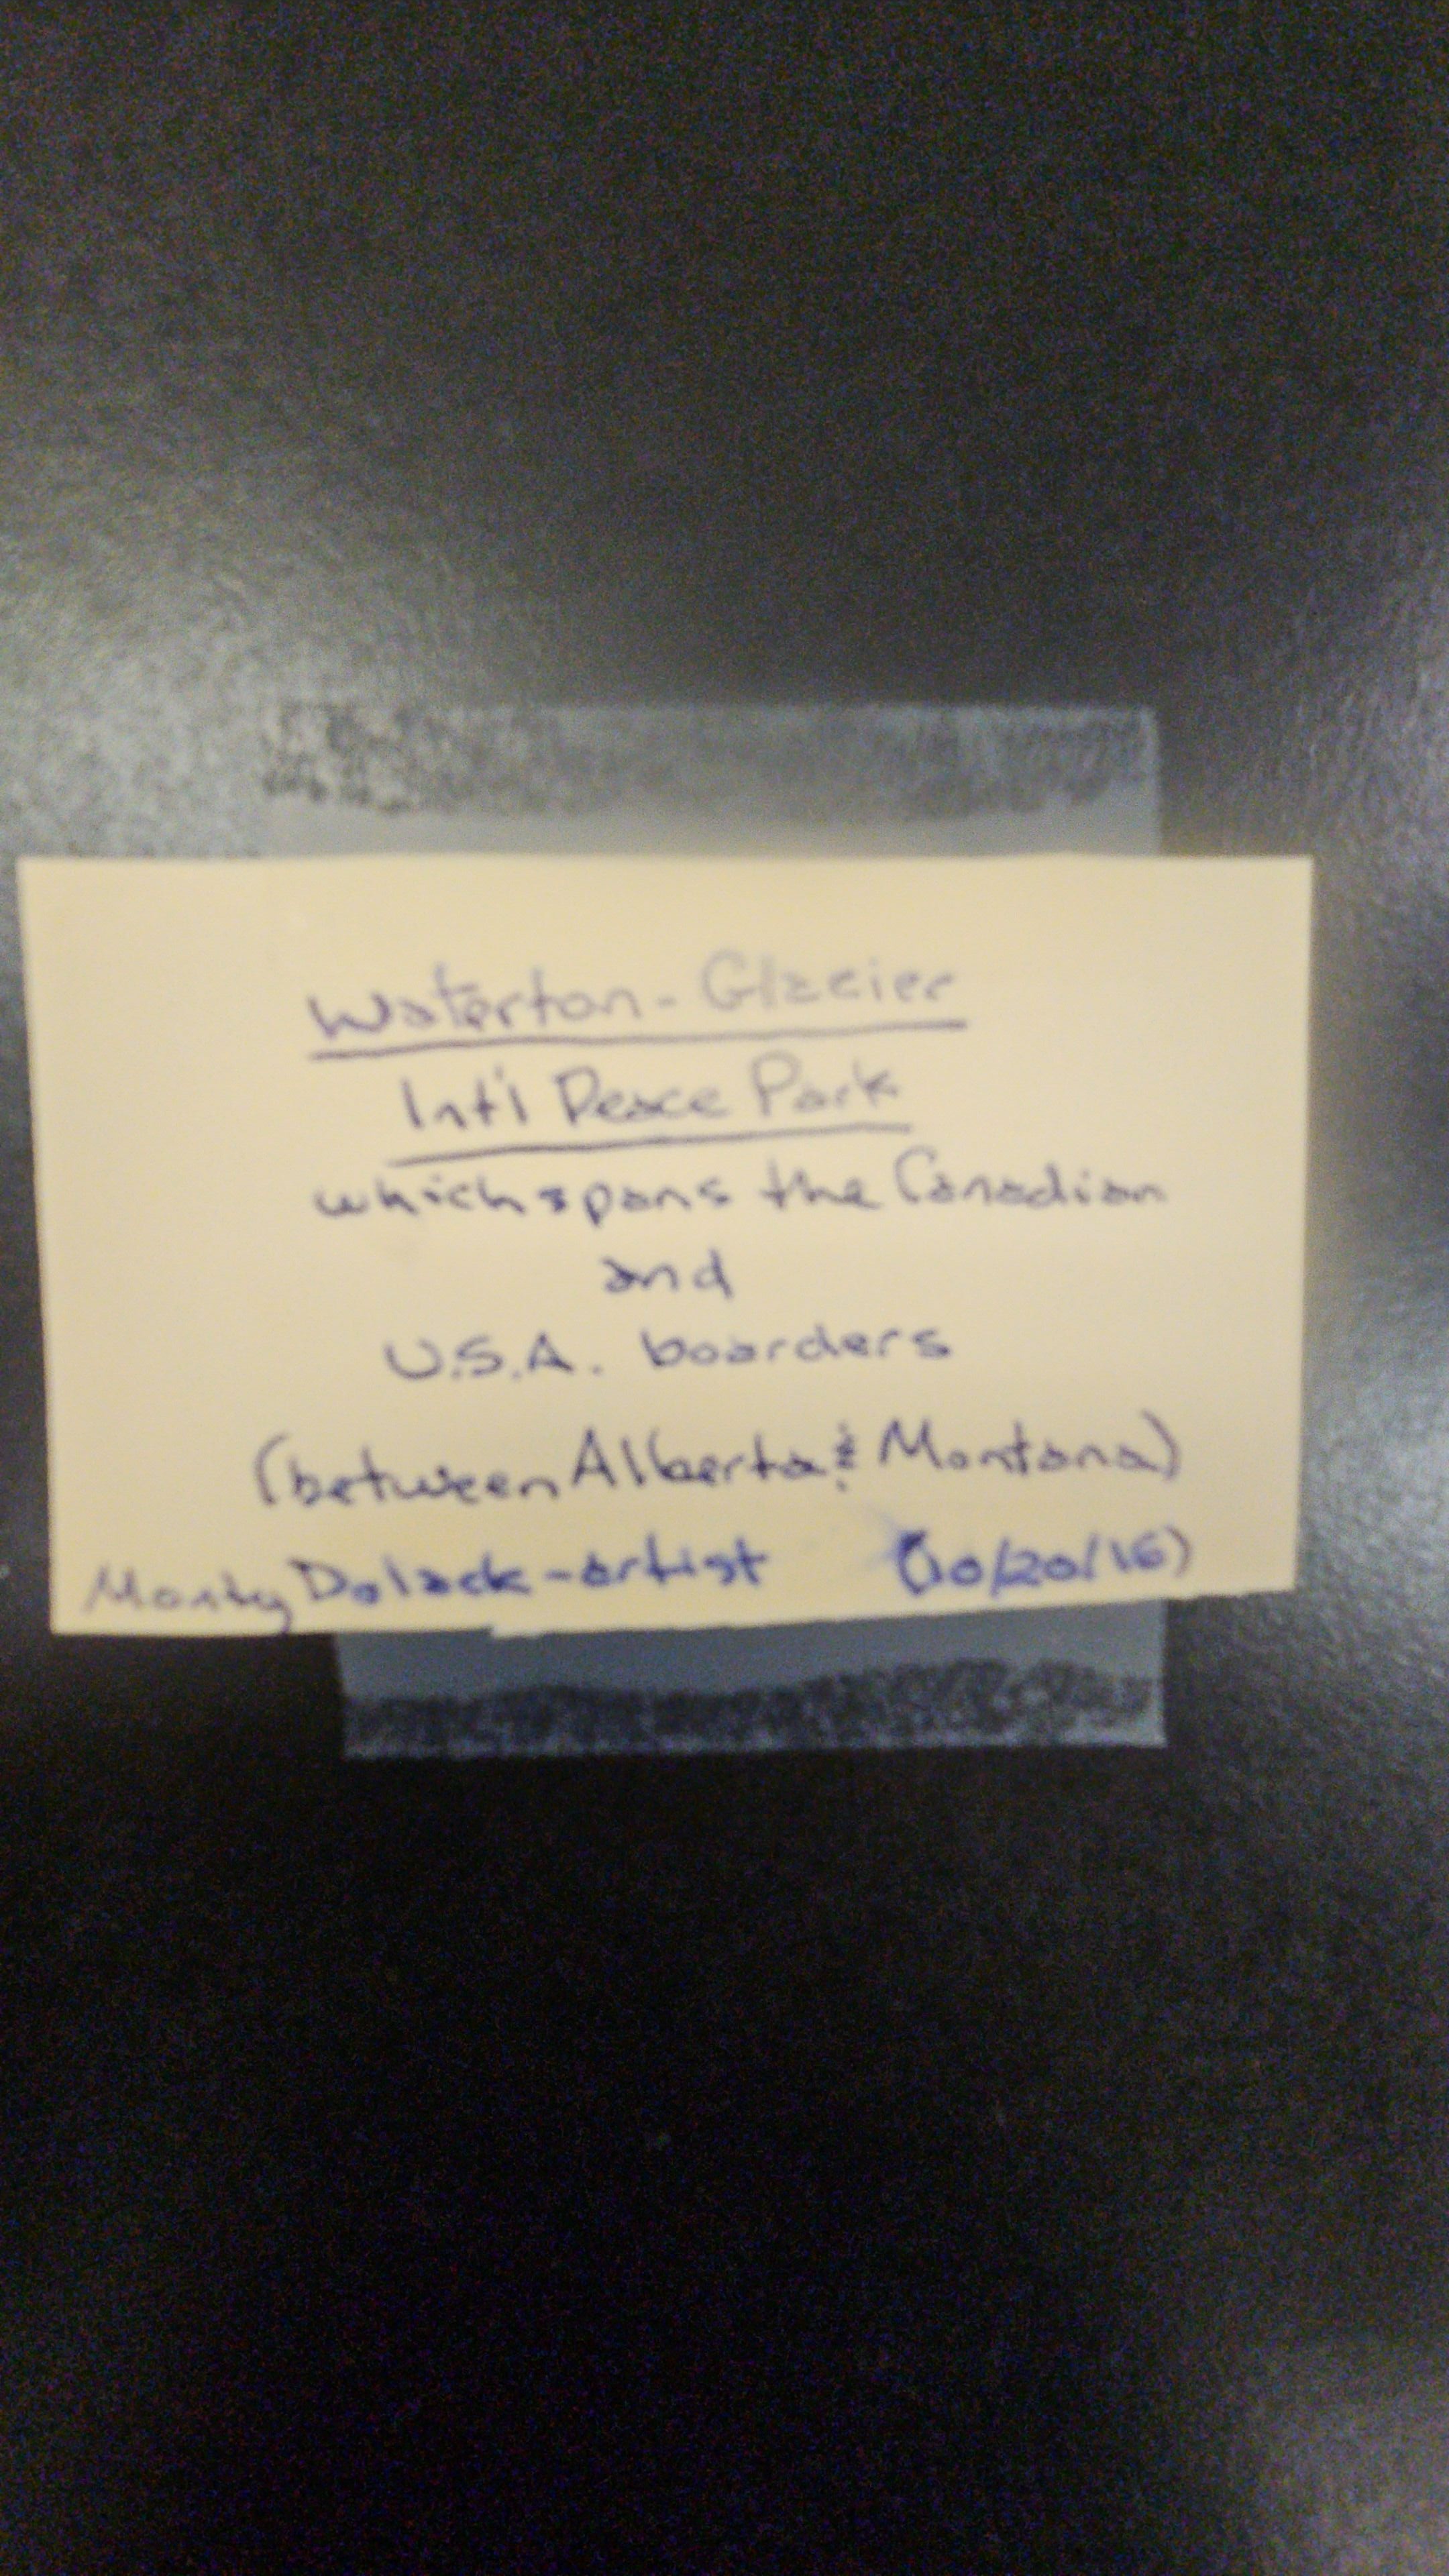 Waterton - Glacier
Int'l Peace Park
which spans the Canadian
and
U.S.A. boarders
(between Alberta & Montana)
Monty Dolack - artist (10/20/16)